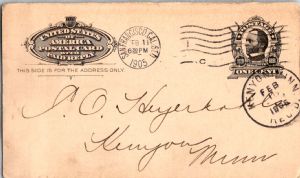 UNITED STATES OF
AMERICA
POSTAL CARD
WITH PAID REPLY
THIS SIDE IS FOR THE ADDRESS ONLY.
SAN FRANCISCO, CAL. STA.
FEB 11
6 PM
1905
C
ONE CENT
FEB
1905
REC'D
Kenyon
Minn